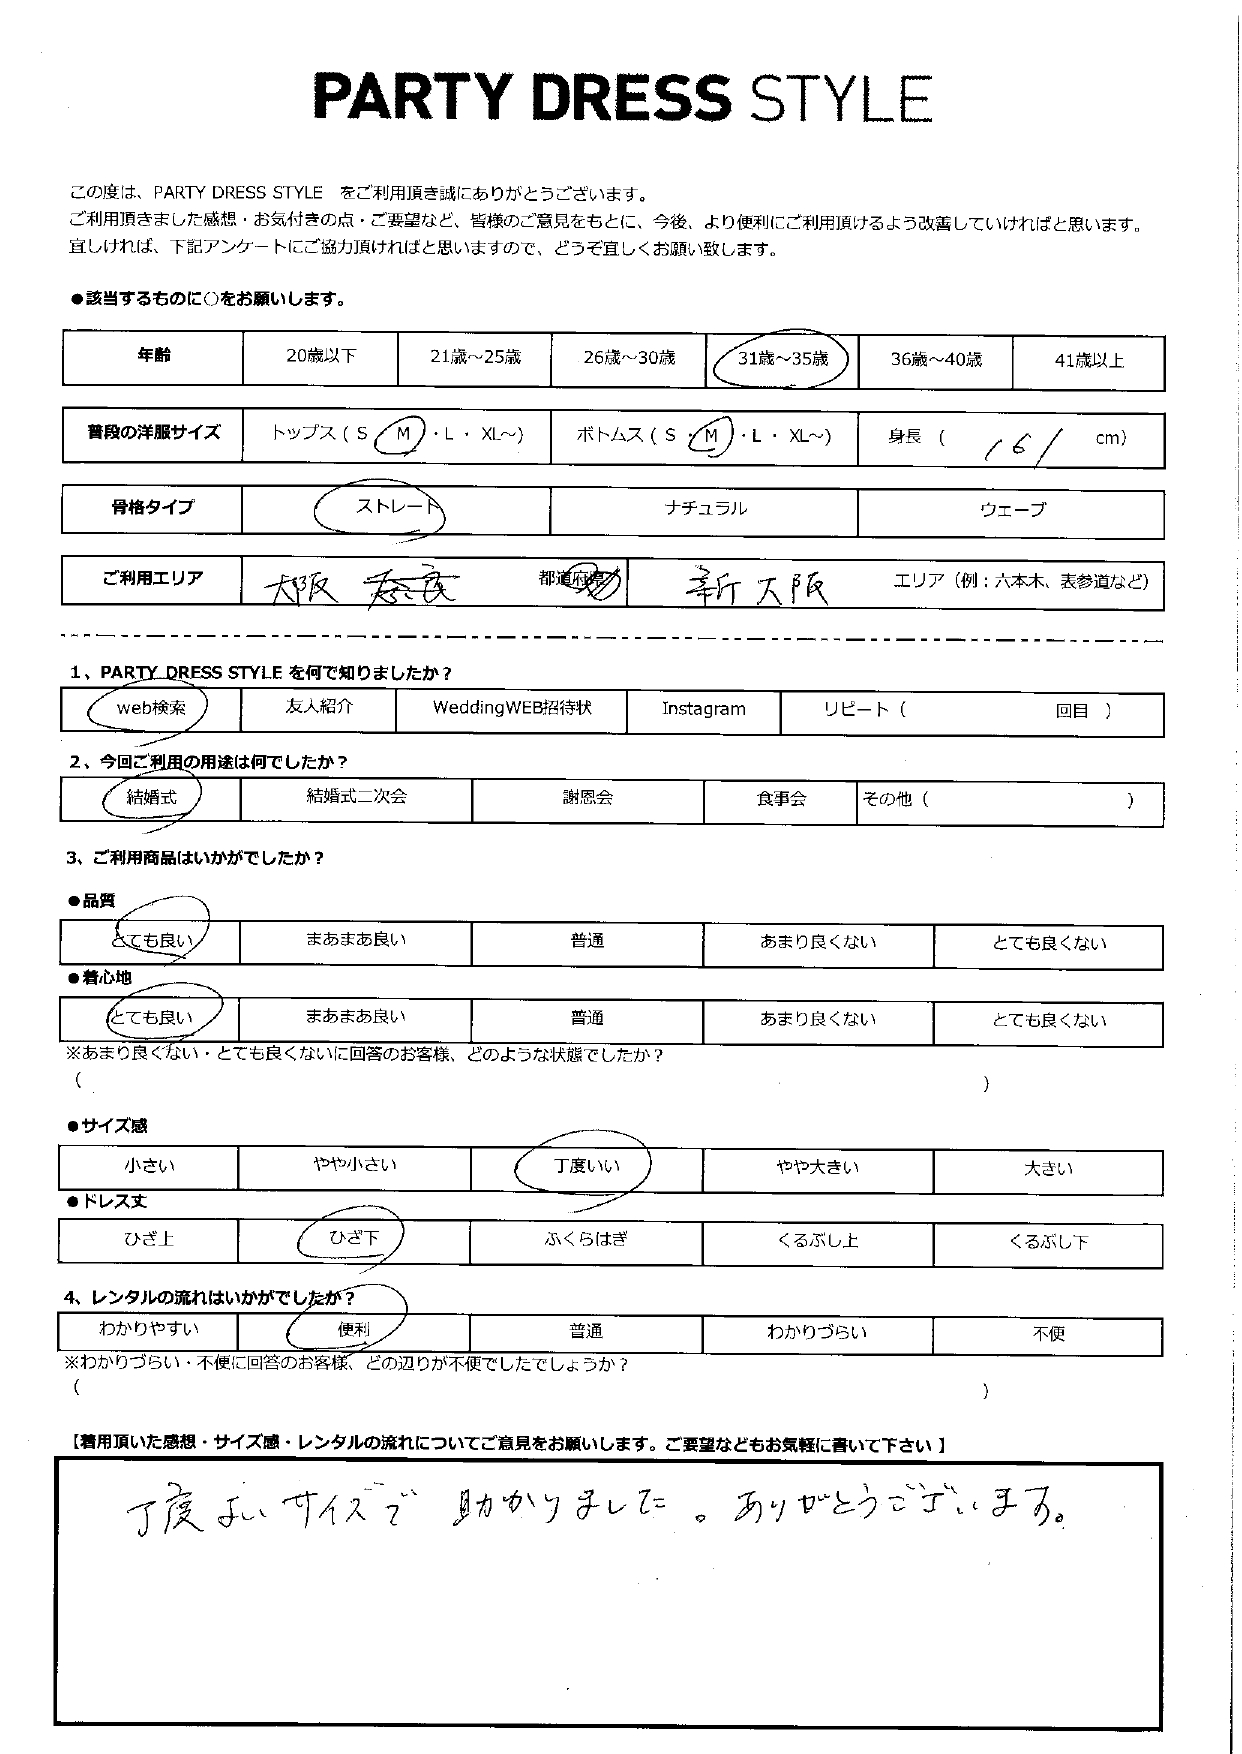 PARTY DRESS STYLE
この度は、PARTY DRESS STYLE をご利用頂き誠にありがとうございます。
ご利用頂きました感想・お気付きの点・ご要望など、皆様のご意見をもとに、今後、より便利にご利用頂けるよう改善していければと思います。
宜しければ、下記アンケートにご協力頂ければと思いますので、どうぞ宜しくお願い致します。
●該当するものに○をお願いします。
年齢 20歳以下 21歳～25歳 26歳～30歳 31歳～35歳 36歳～40歳 41歳以上
普段の洋服サイズ トップス ( S ・ M ・ L ・ XL～) ボトムス ( S ・ M ・ L ・ XL～) 身長 ( 161 cm)
骨格タイプ ストレート ナチュラル ウェーブ
ご利用エリア 大阪 奈良 都道府県 新大阪 エリア（例：六本木、表参道など）
1、PARTY DRESS STYLE を何で知りましたか？
web検索 友人紹介 WeddingWEB招待状 Instagram リピート（ 回目 ）
2、今回ご利用の用途は何でしたか？
結婚式 結婚式二次会 謝恩会 食事会 その他（ ）
3、ご利用商品はいかがでしたか？
●品質
とても良い まあまあ良い 普通 あまり良くない とても良くない
●着心地
とても良い まあまあ良い 普通 あまり良くない とても良くない
※あまり良くない・とても良くないに回答のお客様、どのような状態でしたか？
（ ）
●サイズ感
小さい やや小さい 丁度いい やや大きい 大きい
●ドレス丈
ひざ上 ひざ下 ふくらはぎ くるぶし上 くるぶし下
4、レンタルの流れはいかがでしたか？
わかりやすい 便利 普通 わかりづらい 不便
※わかりづらい・不便に回答のお客様、どの辺りが不便でしたでしょうか？
（ ）
【着用頂いた感想・サイズ感・レンタルの流れについてご意見をお願いします。ご要望などもお気軽に書いて下さい 】
丁度よいサイズで 助かりました。ありがとうございます。